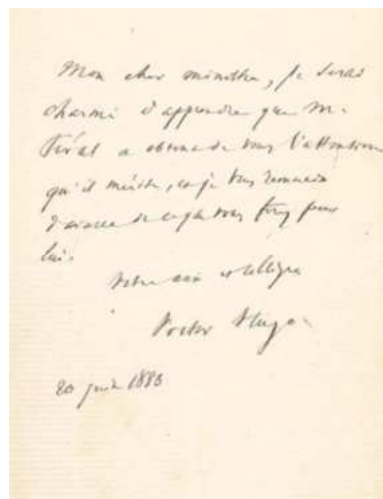 Mon cher ministre, je serais
charmé d'apprendre que M.
a obtenu de vous l'attention
qu'il mérite, et je vous remercie
d'avance de ce que vous ferez pour
lui.
Votre ami et collègue
Victor Hugo
20 juin 1883